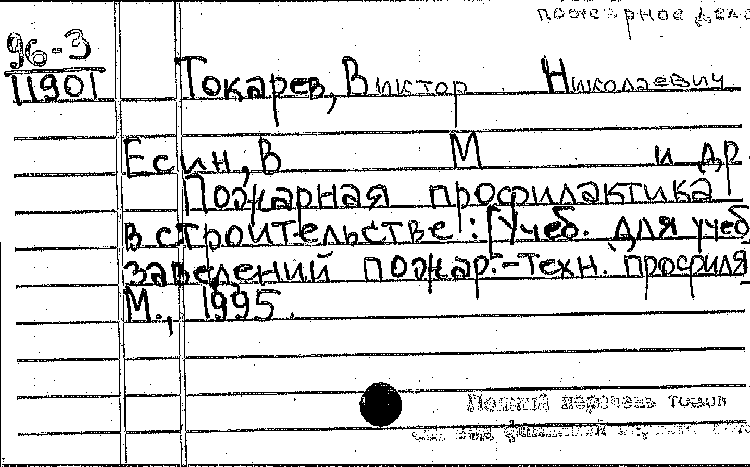 пожарное дело
96-3
11901
Токарев, Виктор Николаевич
Есин, В М и др.
Пожарная профилактика
в строительстве: [Учеб. для учеб
заведений пожар.-техн. профиля
М., 1995.
Полный перечень томов